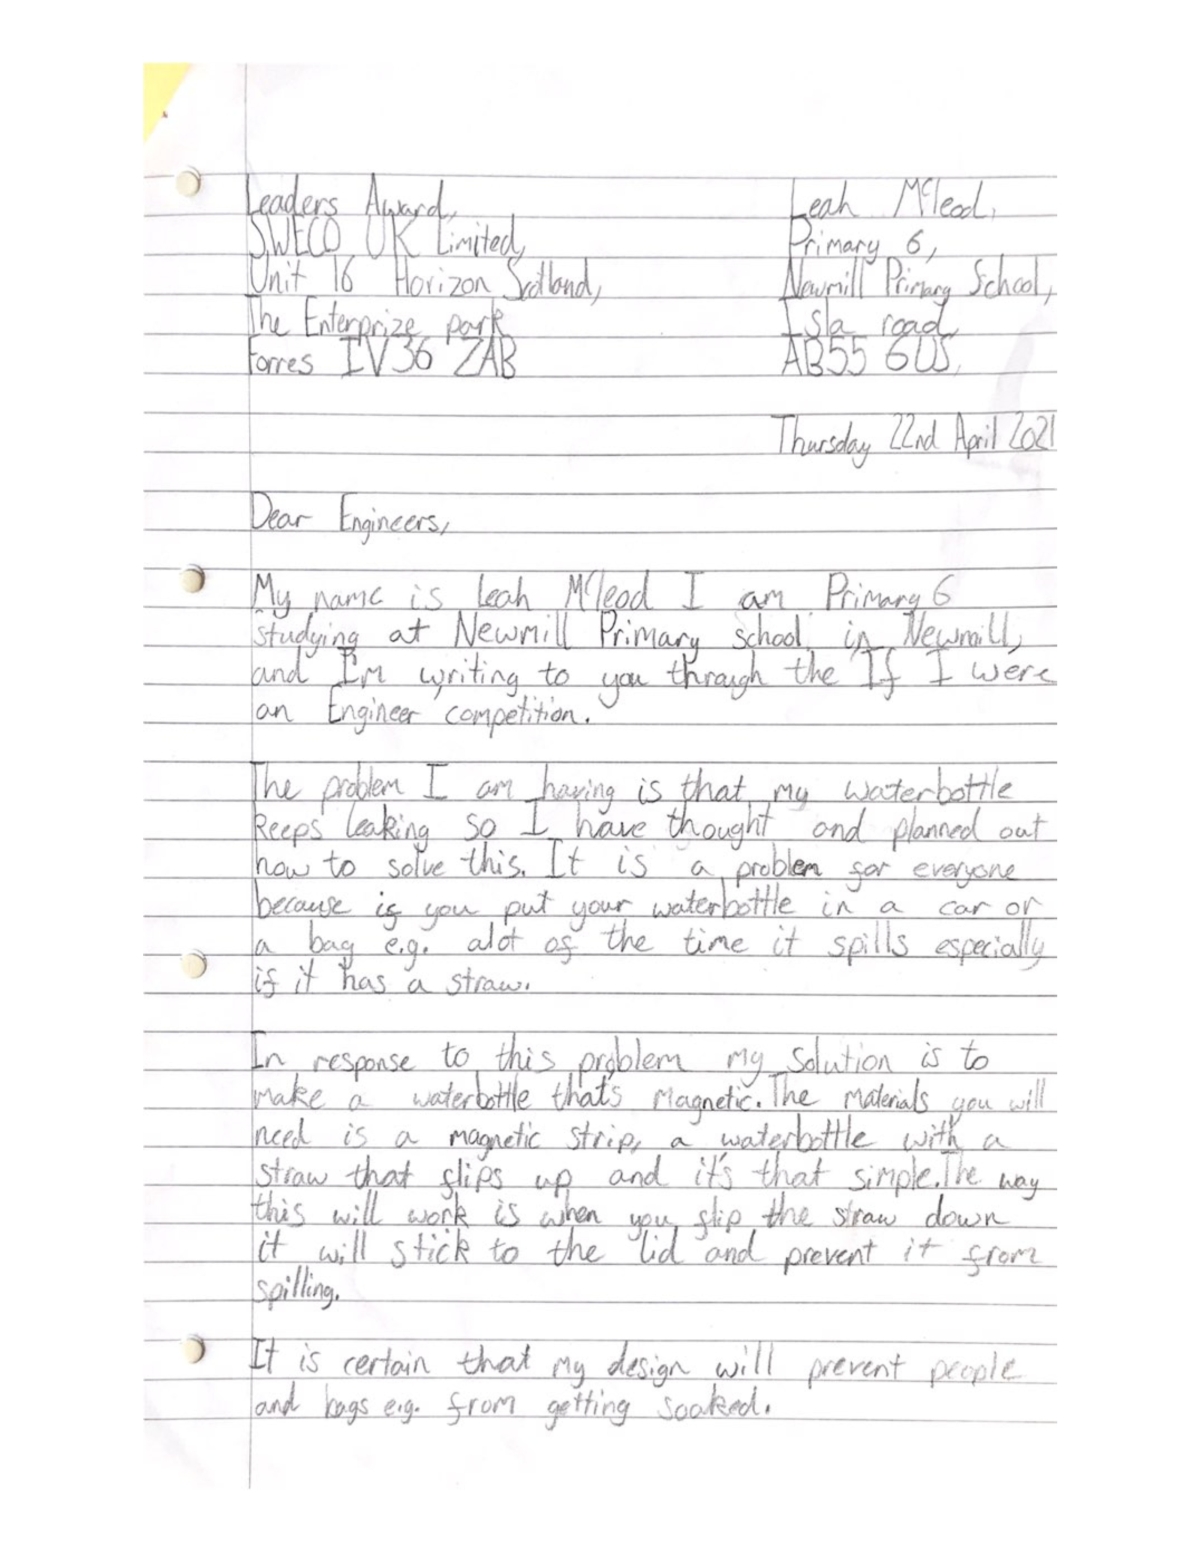 Leaders Award,
SWECO UK Limited,
Unit 16 Horizon Scotland,
The Enterprize park
Forres IV36 2AB
Leah Mcleod,
Primary 6,
Newmill Primary School,
Isla road,
AB55 6US,
Thursday 22nd April 2021
Dear Engineers,
My name is Leah Mcleod I am Primary 6
studying at Newmill Primary school in Newmill,
and I'm writing to you through the If I were
an Engineer competition.
The problem I am having is that my waterbottle
keeps leaking so I have thought and planned out
how to solve this. It is a problem for everyone
because if you put your waterbottle in a car or
a bag e.g. alot of the time it spills especially
if it has a straw.
In response to this problem my solution is to
make a waterbottle that's magnetic. The materials you will
need is a magnetic strip, a waterbottle with a
straw that flips up and it's that simple. The way
this will work is when you flip the straw down
it will stick to the lid and prevent it from
spilling.
It is certain that my design will prevent people
and bags e.g. from getting soaked.